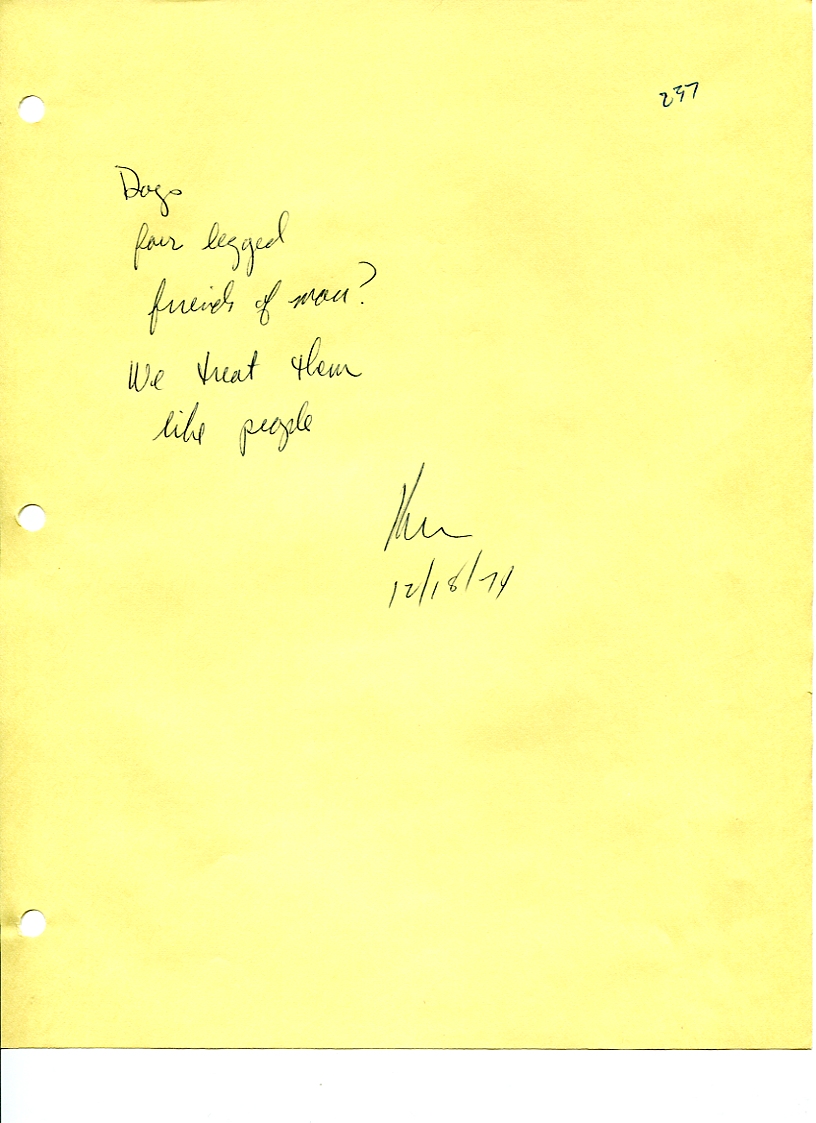 237
Dogs
four legged
friends of man?
We treat them
like people
12/18/74